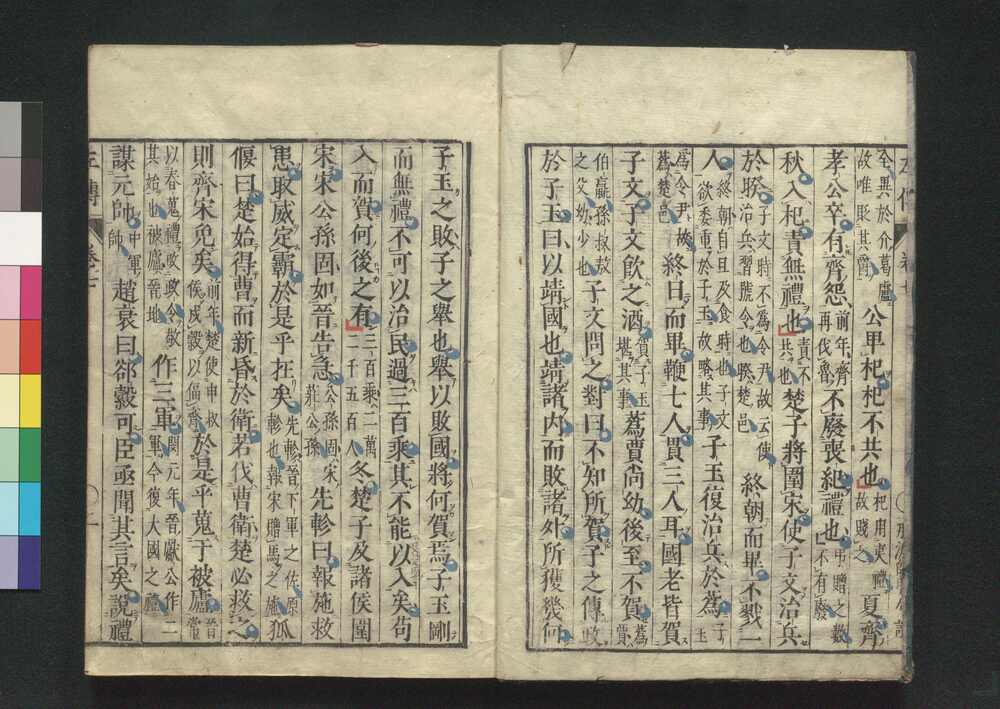 全異於介葛盧故唯貶其爵公卑杞杞不共也杞用夷禮故賤之夏齊
孝公卒有齊怨前年齊再伐魯不廢喪紀禮也弔贈之數不有廢
秋入杞責無禮也責不共也楚子將圍宋使子文治兵
於睽子文時不爲令尹故云使治兵習號令也睽楚邑終朝而畢不戮一
人終朝自旦及食時也子文欲委重於子玉故略其事子玉復治兵於蔿子玉
爲令尹故蔿楚邑終日而畢鞭七人貫三人耳國老皆賀
子文子文飲之酒賀子玉堪其事蔿賈尚幼後至不賀蔿賈
伯嬴孫叔敖之父幼少也子文問之對曰不知所賀子之傳政
於子玉曰以靖國也靖諸内而敗諸外所獲幾何
子玉之敗子之舉也舉以敗國將何賀焉子玉剛
而無禮不可以治民過三百乘其不能以入矣苟
入而賀何後之有三百乘二萬二千五百人冬楚子及諸侯圍
宋宋公孫固如晉告急公孫固宋莊公孫先軫曰報施救
患取威定霸於是乎在矣先軫晉下軍之佐原軫也報宋贈馬之施狐
偃曰楚始得曹而新昏於衛若伐曹衛楚必救之
則齊宋免矣前年楚使申叔侯戍穀以偪齊於是乎蒐于被廬晉常
以春蒐禮改政令敬其始也被廬晉地作三軍閔元年晉獻公作二軍今復大國之禮
謀元帥中軍帥趙衰曰郤縠可臣亟聞其言矣說禮
左傳 卷七